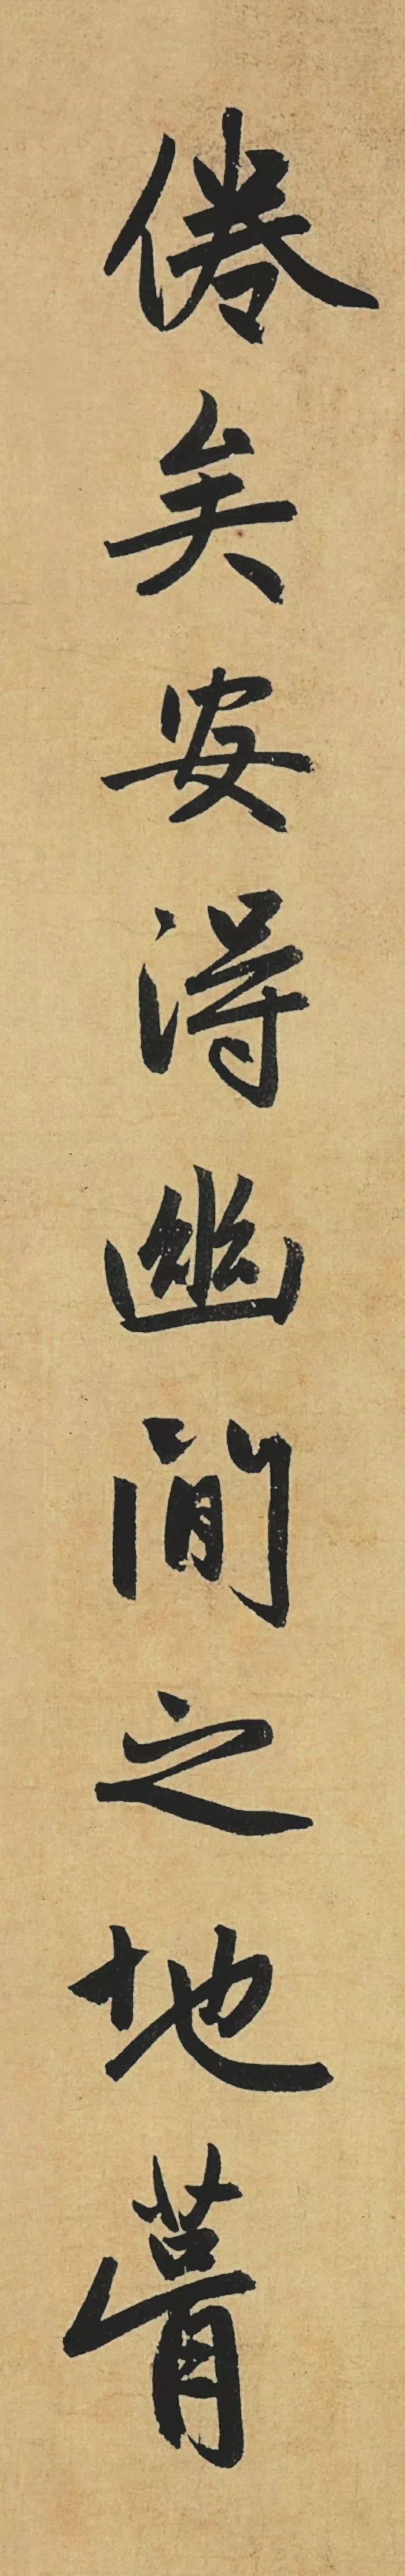 倦矣安得幽閒之地葺